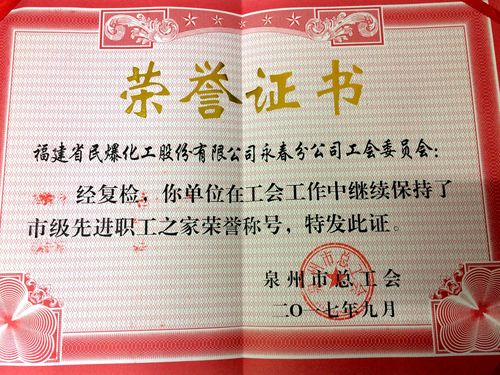 荣誉证书
福建省民爆化工股份有限公司永春分公司工会委员会：
经复检，你单位在工会工作中继续保持了
市级先进职工之家荣誉称号，特发此证。
泉州市总工会
二〇一七年九月